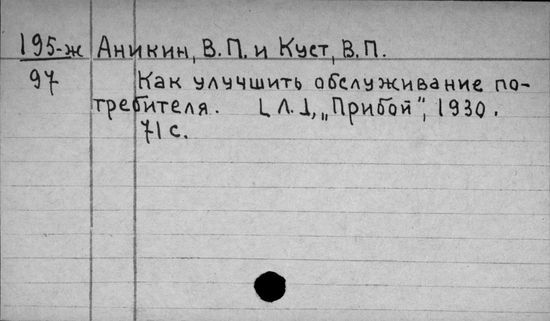 195-ж Аникин, В.П. и Куст, В.П.
97 Как улучшить обслуживание по-
требителя. [Л.], „Прибой", 1930.
71 с.